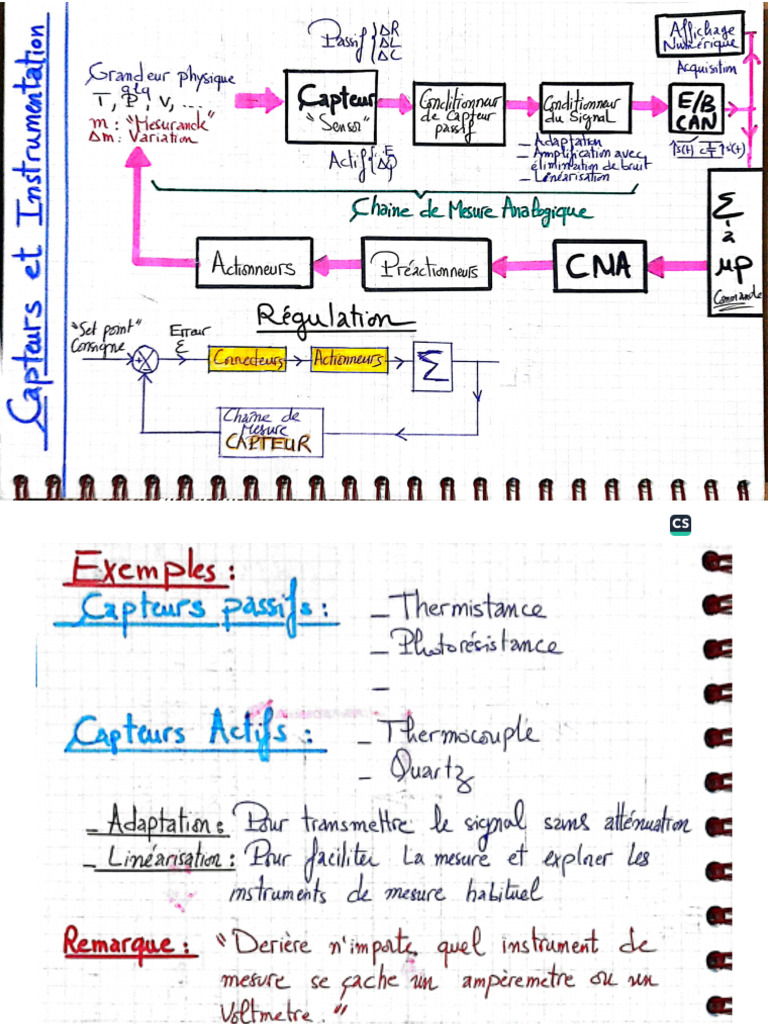 Capteurs et Instrumentation
Passif { ΔR
ΔL
ΔC
Affichage
Numérique
Acquisition
Grandeur physique
T, P, V, ...
m : "Mesurande"
Δm : Variation
Capteur
"Sensor"
Actif { E
Conditionneur
de Capteur
passif
Conditionneur
du Signal
_ Adaptation
_ Amplification avec
élimination de bruit
_ Linéarisation
E/B
CAN
Chaine de Mesure Analogique
Σ
à
µp
Commande
CNA
Préactionneurs
Actionneurs
Régulation
"Set point"
Consigne
Erreur
ε
Connecteurs
Actionneurs
Σ
Chaîne de
Mesure
CAPTEUR
CS
Exemples :
Capteurs passifs :
_ Thermistance
_ Photorésistance
_
Capteurs Actifs :
_ Thermocouple
_ Quartz
_ Adaptation : Pour transmettre le signal sans atténuation
_ Linéarisation : Pour faciliter la mesure et les
instruments de mesure habituel
Remarque : "Derière n'importe quel instrument de
mesure se cache un ampèremetre ou un
Voltmetre."